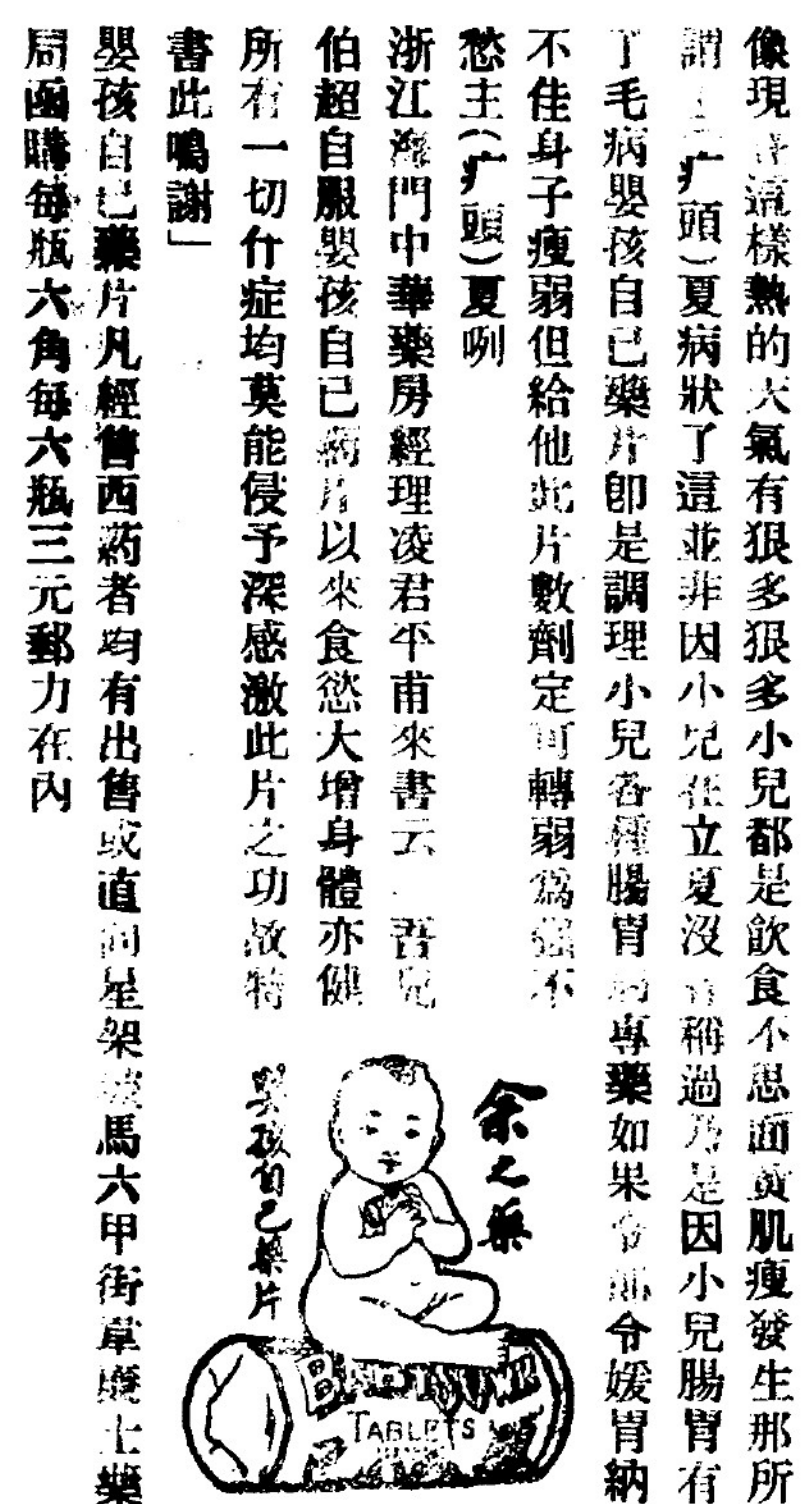 像現這樣熱的大氣有狠多狠多小兒都是飲食不思面黃肌瘦發生那所
謂(疒頭)夏病狀了這並非因小兒在立夏沒稱過乃是因小兒腸胃有
了毛病嬰孩自己藥片卽是調理小兒各種腸胃專藥如果令郞令嫒胃納
不佳身子瘦弱但給他此片數劑定可轉弱爲强不
愁主(疒頭)夏咧
浙江海門中華藥房經理凌君平甫來書云吾兒
伯超自服嬰孩自己藥片以來食慾大增身體亦健
所有一切什症均莫能侵予深感激此片之功故特
書此鳴謝」
嬰孩自己藥片凡經售西葯者均有出售或直向星架坡馬六甲街韋廉士藥
局函購每瓶六角每六瓶三元郵力在內
余之藥
嬰孩自己藥片
TABLETS